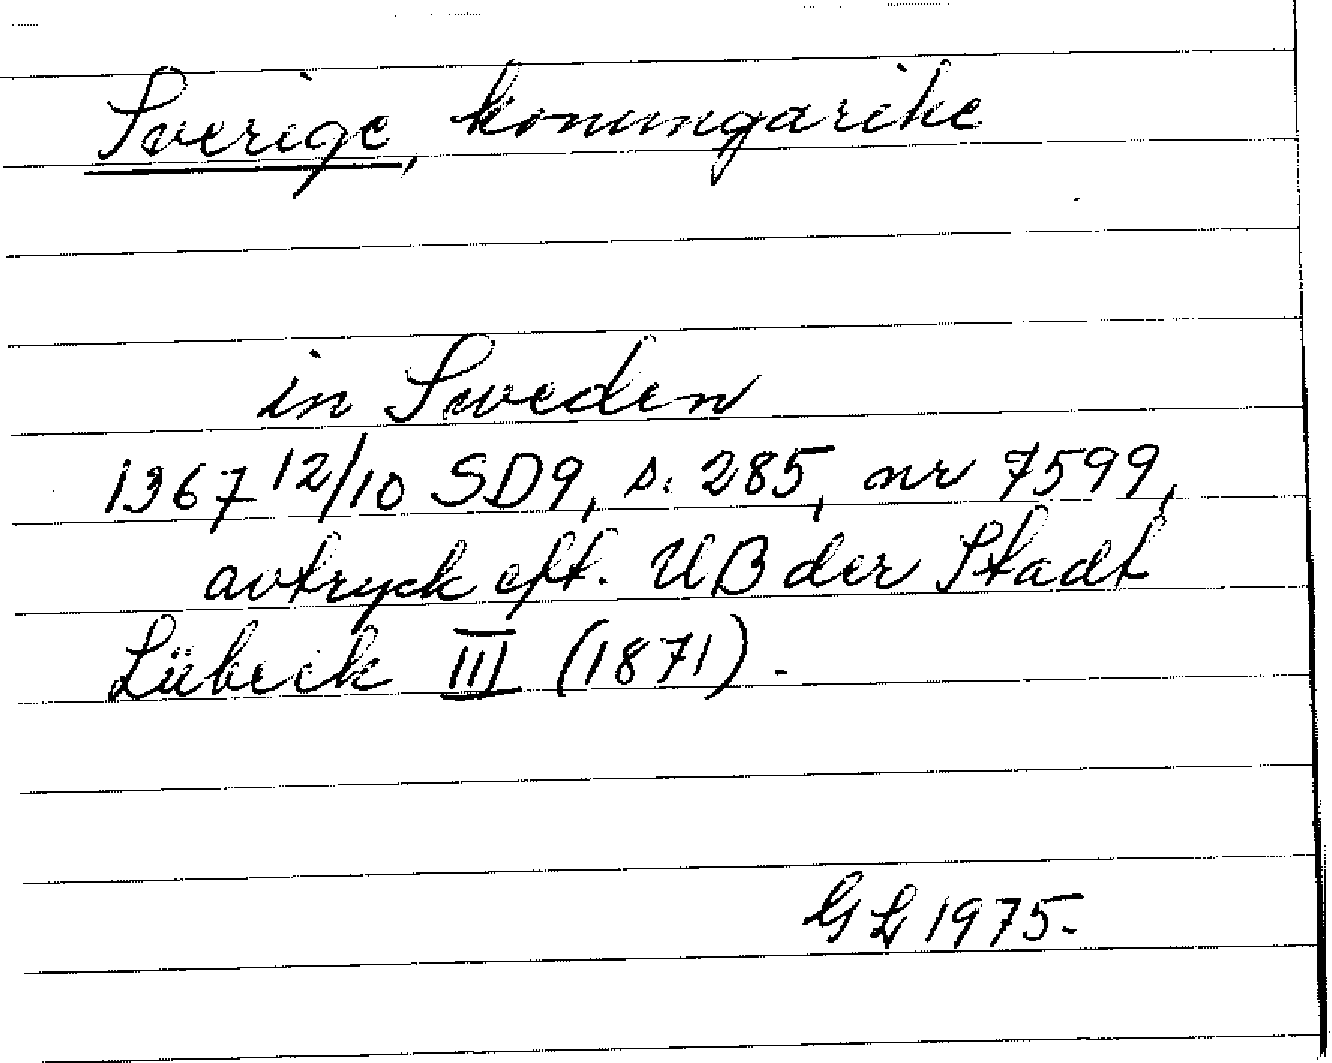 Sverige, konungarike
in Sweden
1367 12/10 SD9, s. 285, nr 7599,
avtryck eft. UB der Stadt
Lübeck III (1871).
GL 1975.